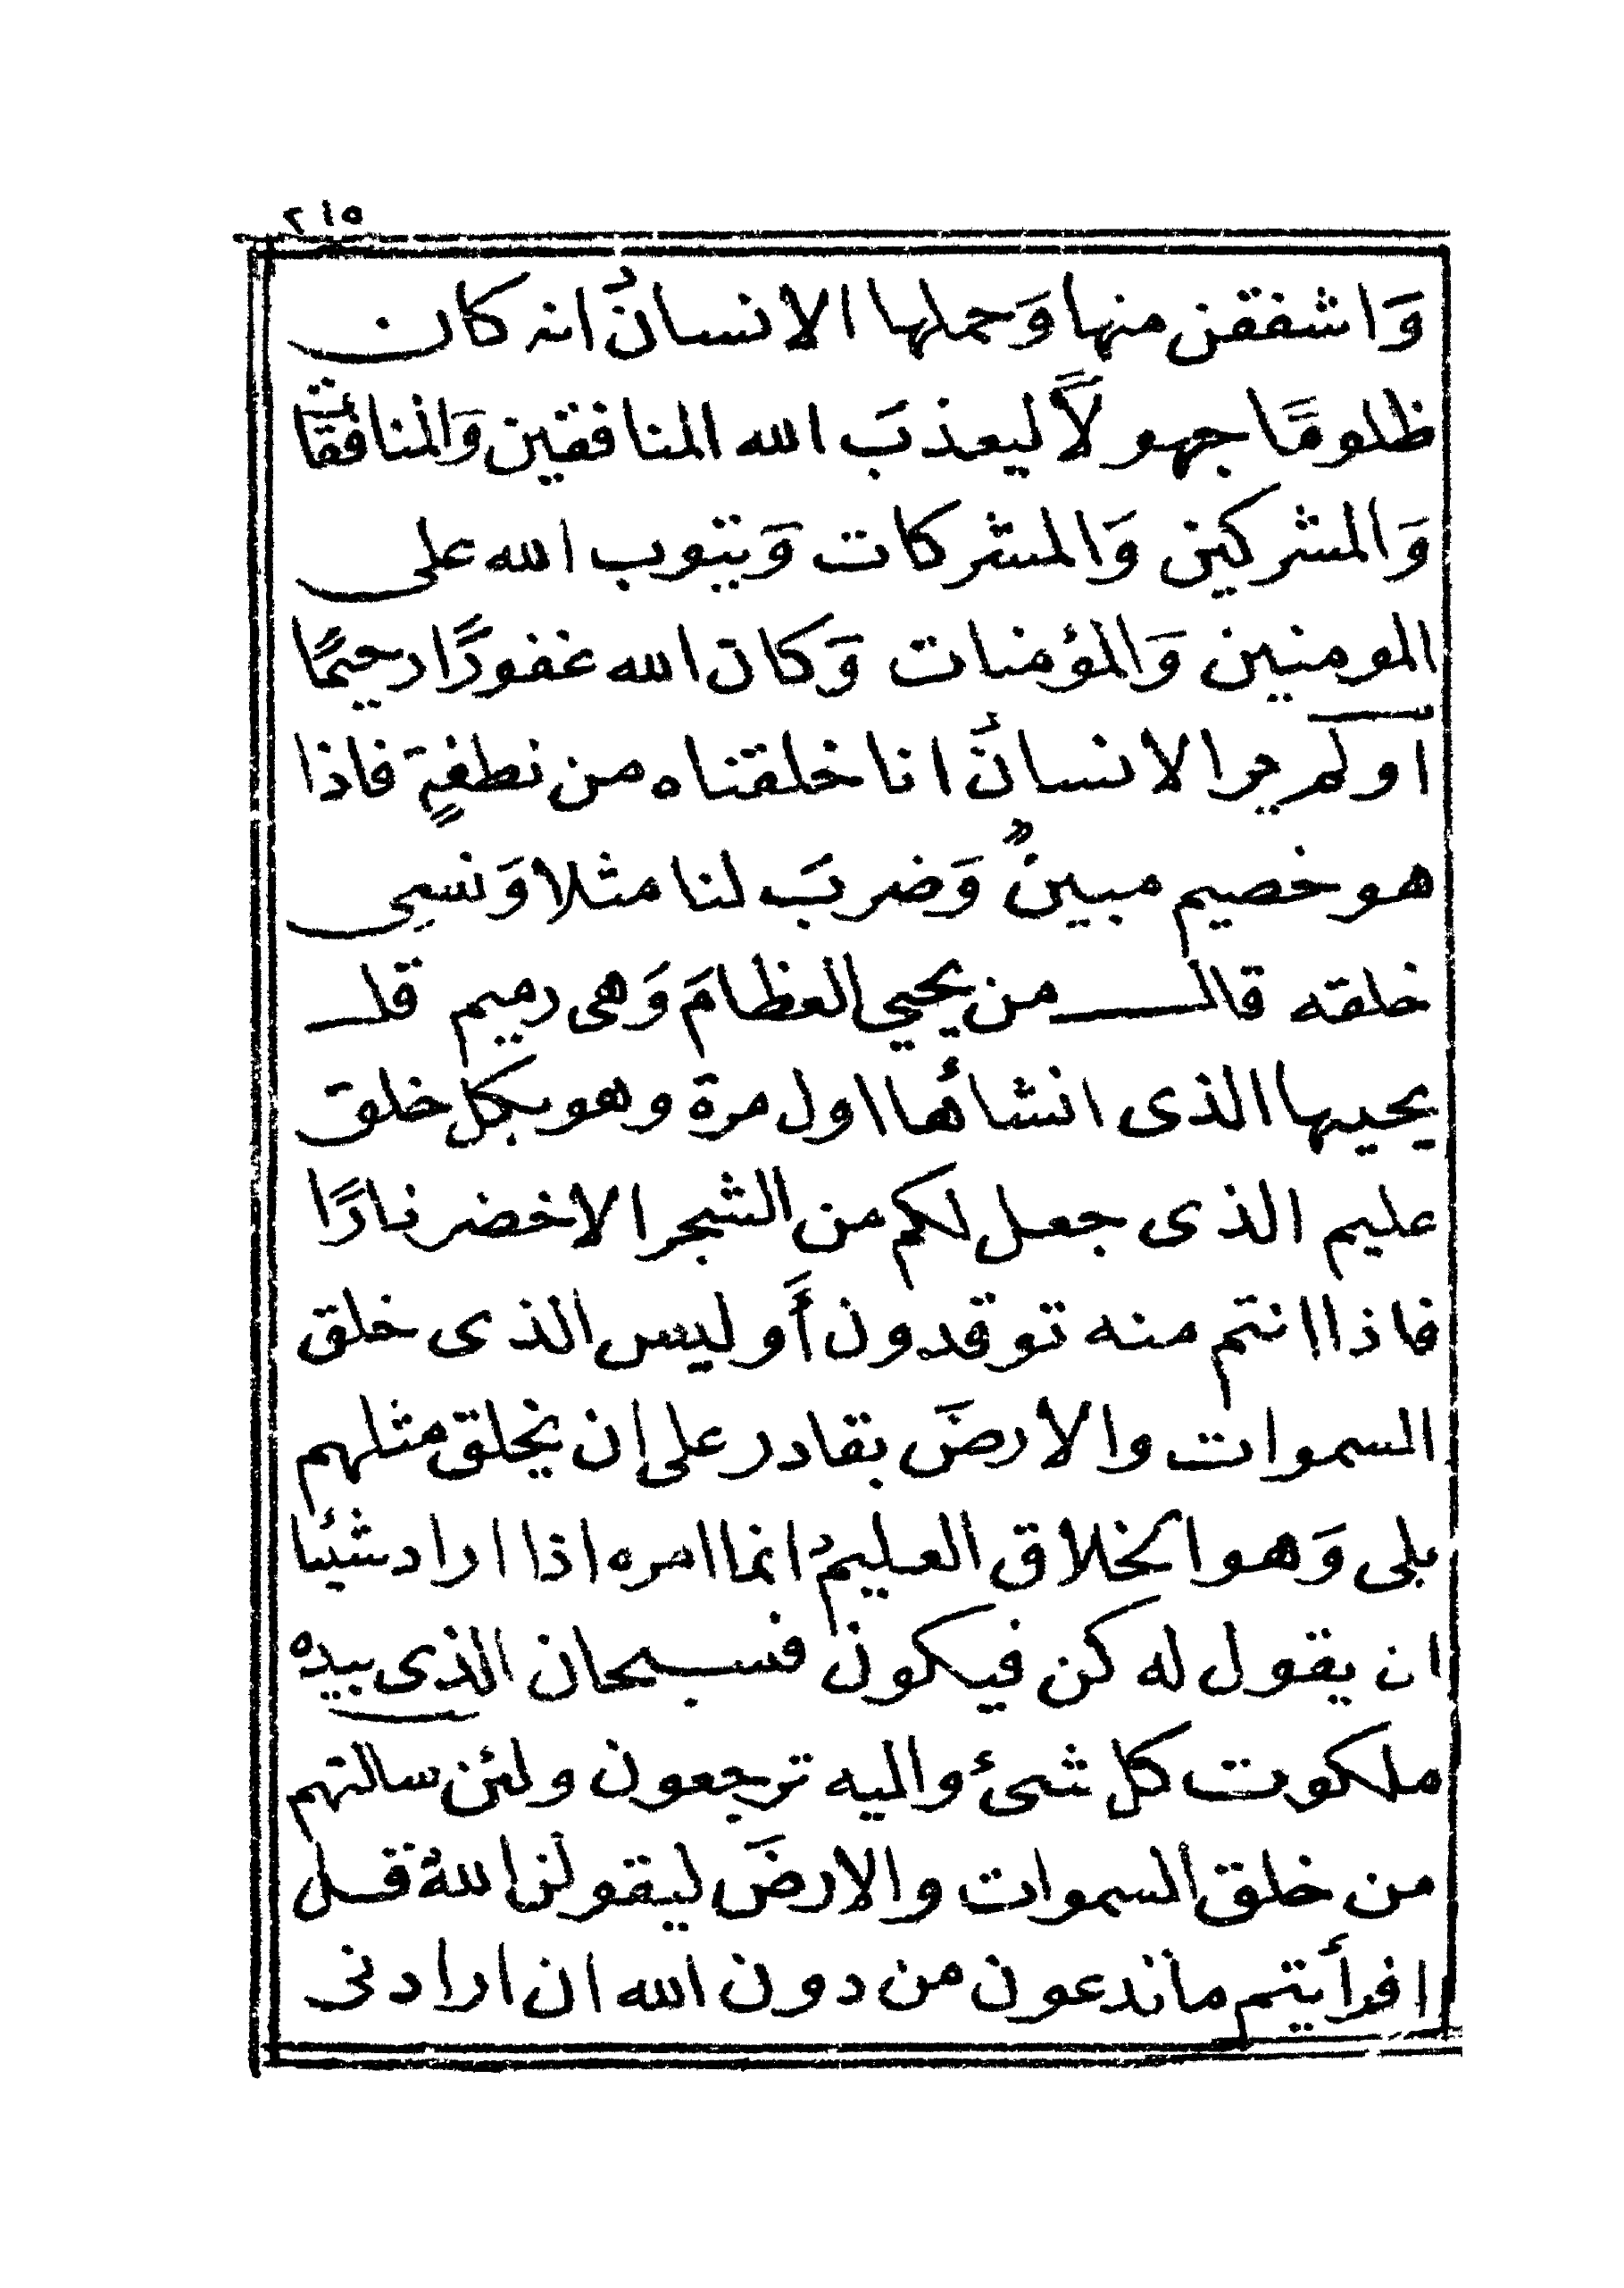 ٢١٥
وَاشفقن منها وَحملها الانسانُ انه كان
ظلومًا جهولًا ليعذبَ الله المنافقين وَالمنافقات
وَالمشركين وَالمشركات وَيتوب الله على
المومنين وَالمؤمنات وَكان الله غفورًا رحيمًا
اولم ير الانسانُ انا خلقناه من نطفةٍ فاذا
هو خصيم مبينٌ وَضربَ لنا مثلا وَنسي
خلقه قال من يحيي العظامَ وَهى رميم قل
يحييها الذى انشأها اول مرة وهو بكل خلق
عليم الذى جعل لكم من الشجر الاخضر نارًا
فاذا انتم منه توقدون أَوليس الذى خلق
السموات والارضَ بقادر على ان يخلق مثلهم
بلى وَهو الخلاق العليمُ انما امره اذا اراد شيئا
ان يقول له كن فيكون فسبحان الذى بيده
ملكوت كل شىء واليه ترجعون ولئن سالتهم
من خلق السموات والارضَ ليقولن اللهُ قل
افرأيتم ما تدعون من دون الله ان ارادنى